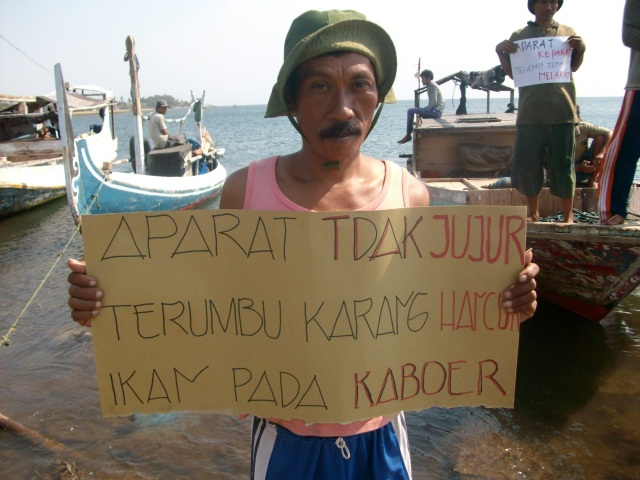 APARAT TDAK JUJUR
TERUMBU KARANG HANCUR
IKAN PADA KABOER
APARAT KEPARAT
MELARAT